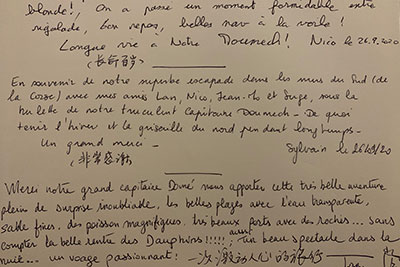 blonde!, On a passé un moment formidable entre
rigolade, bon repas, belles nav à la voile!
Longue vie à Notre Doumech! Nico le 26.9.2020
En souvenir de notre superbe escapade dans les mers du Sud (de
la Corse) avec mes amis Lan, Nico, Jean-Yo et Suze, sous la
houlette de notre truculent Capitaine Doumech - De quoi
tenir l'hiver et la grisaille du nord pendant longtemps -
Un grand merci - Sylvain le 26/09/20
(非常感谢)
Merci notre grand capitaine Domé nous apporter cette très belle aventure
plein de surprise inoubliable, les belles plages avec l'eau transparente,
sable fines, des poisson magnifiques, très beaux ports avec des roches... sans
compter la belle rentre des Dauphins !!!!! aussi un beau spectacle dans la
nuit... un voyage passionnant! 一次激动人心的旅行